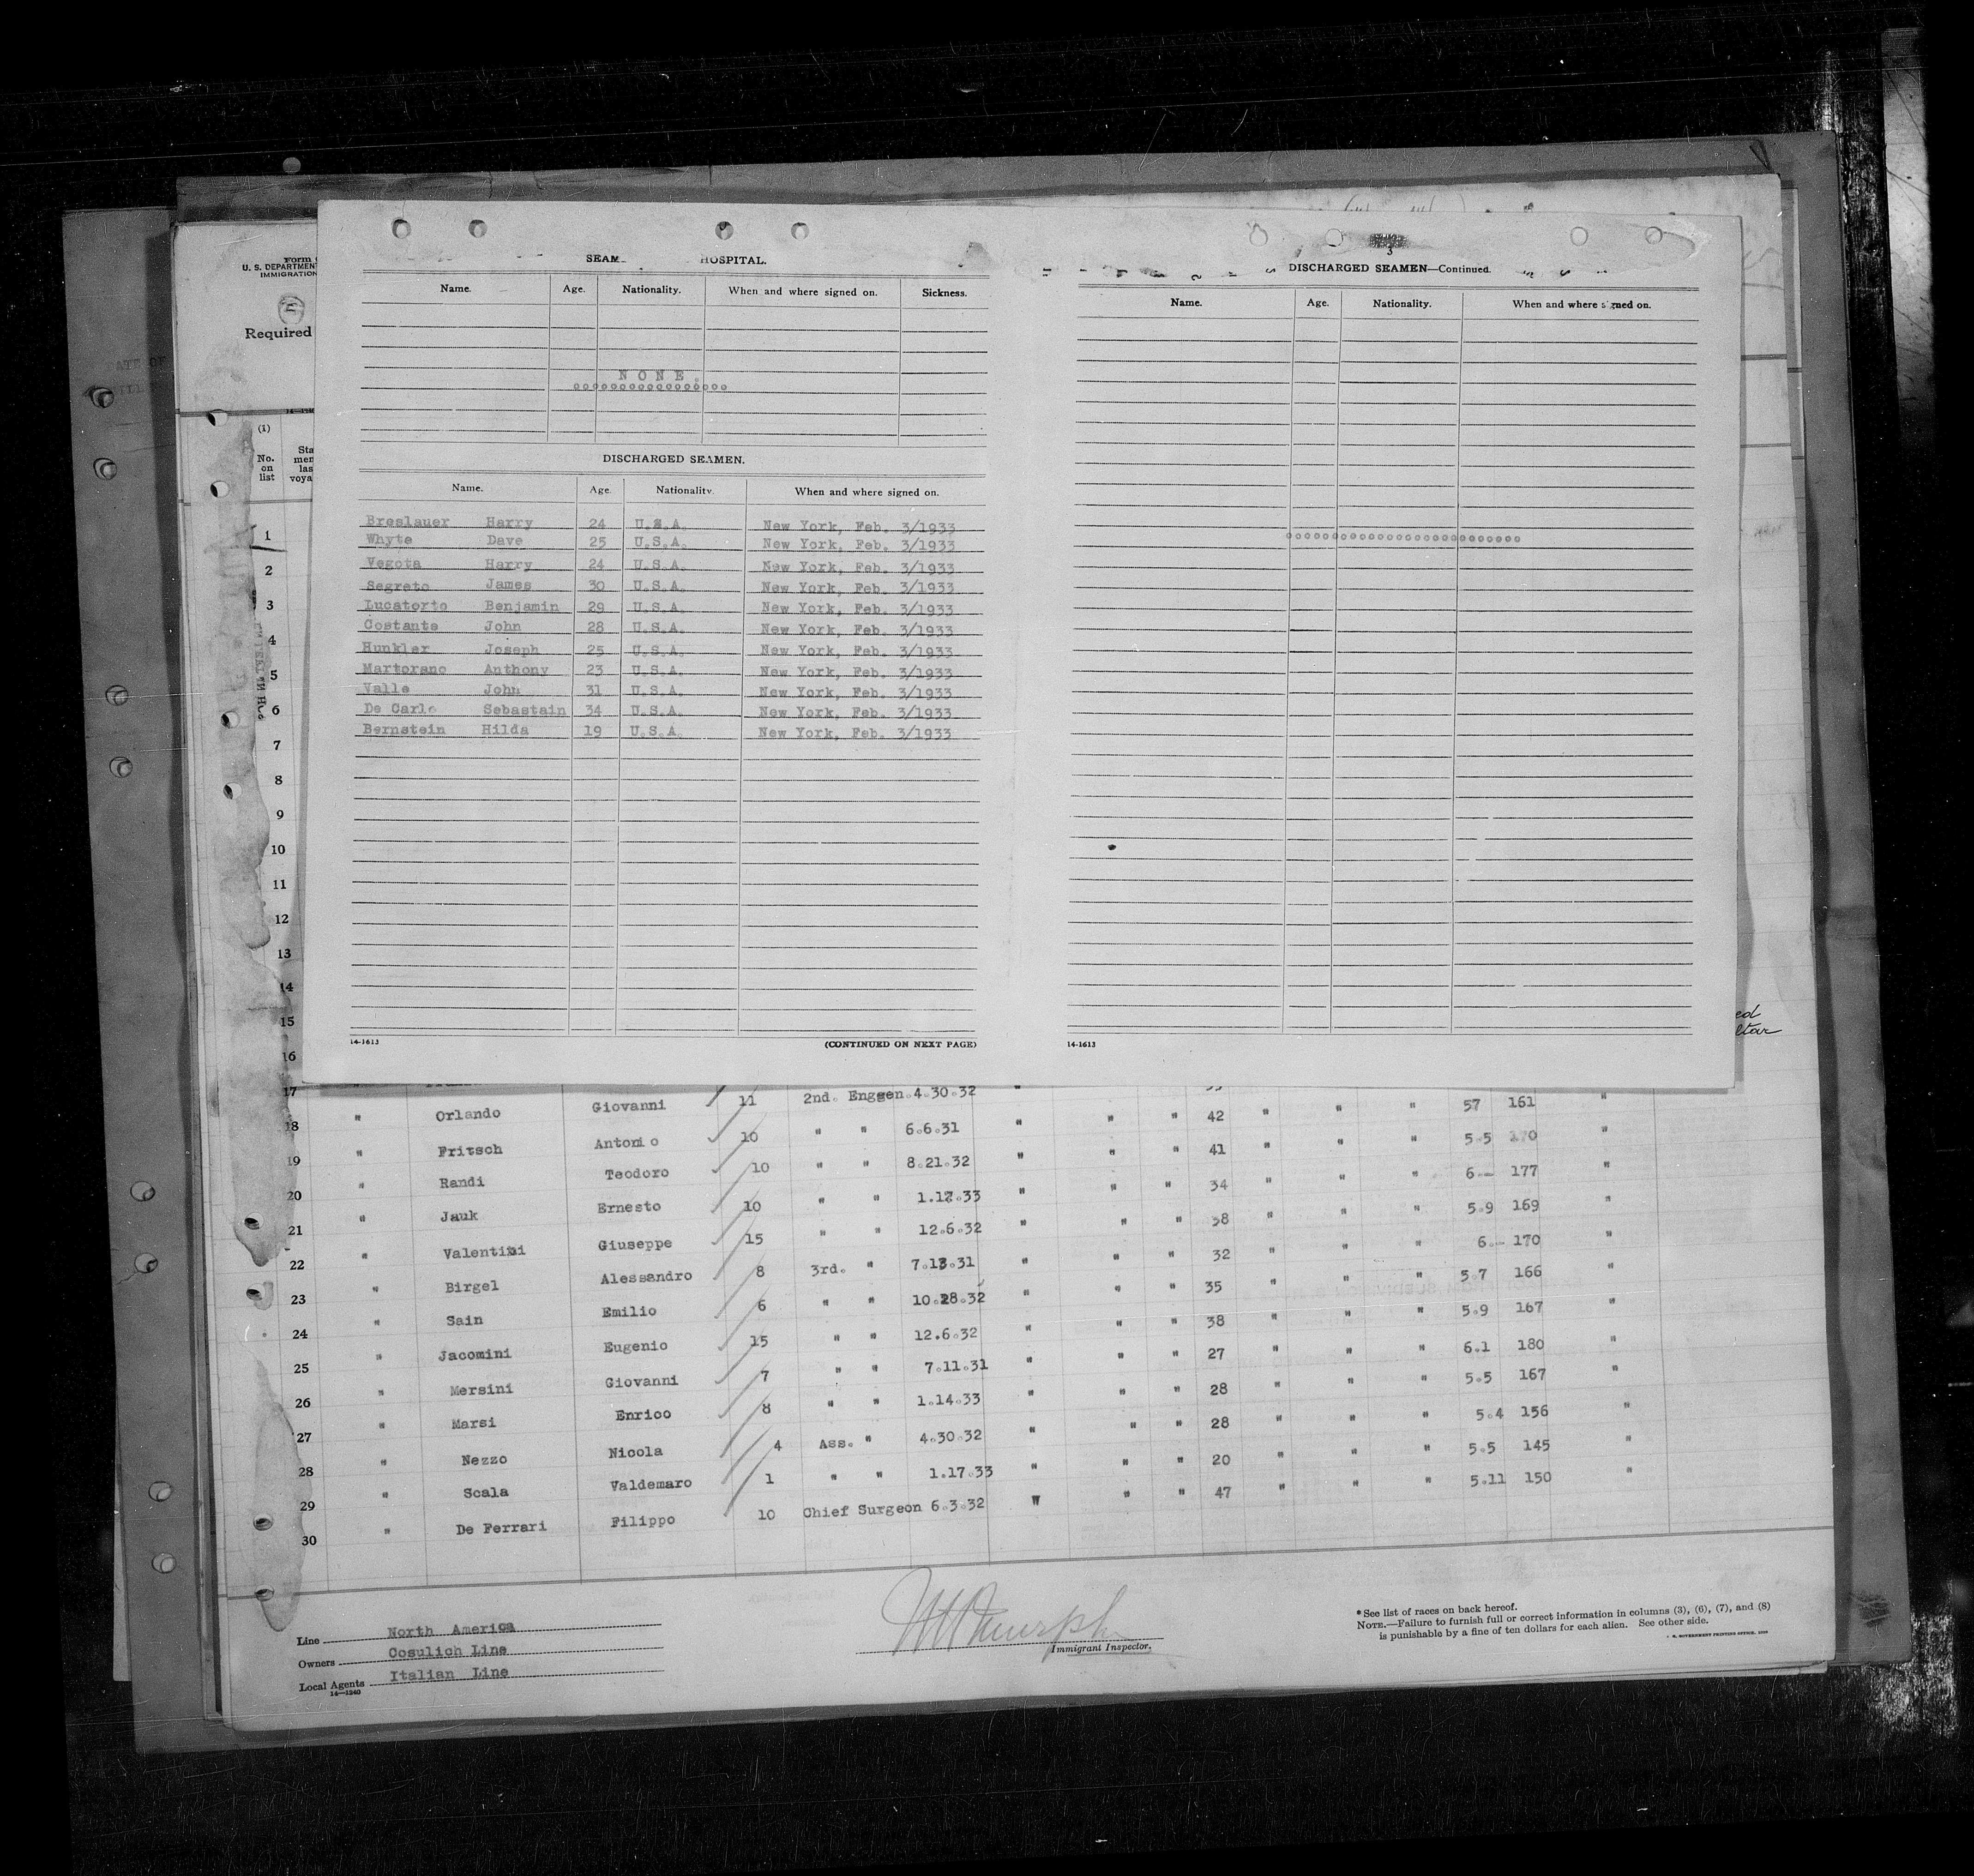 Form
U. S. DEPARTMENT
IMMIGRATION
Required
(1)
No. on list
HOSPITAL.
Name. Age. Nationality. When and where signed on. Sickness.
NONE.
DISCHARGED SEAMEN.
Name. Age. Nationality. When and where signed on.
Breslauer Harry 24 U.S.A. New York, Feb. 3/1933
Whyte Dave 25 U.S.A. New York, Feb. 3/1933
Vegota Harry 24 U.S.A. New York, Feb. 3/1933
Segreto James 30 U.S.A. New York, Feb. 3/1933
Lucatorto Benjamin 29 U.S.A. New York, Feb. 3/1933
Costante John 28 U.S.A. New York, Feb. 3/1933
Hunkler Joseph 25 U.S.A. New York, Feb. 3/1933
Martorano Anthony 23 U.S.A. New York, Feb. 3/1933
Valle John 31 U.S.A. New York, Feb. 3/1933
De Carlo Sebastain 34 U.S.A. New York, Feb. 3/1933
Bernstein Hilda 19 U.S.A. New York, Feb. 3/1933
14-1613 (CONTINUED ON NEXT PAGE)
3
DISCHARGED SEAMEN—Continued.
Name. Age. Nationality. When and where signed on.
14-1613
1
2
3
4
5
6
7
8
9
10
11
12
13
14
15
16
17
18 " Orlando Giovanni 11 2nd. Enggen. 4.30.32 " " " 42 " " " 57 161 "
19 " Fritsch Antonio 10 " " 6.6.31 " " " 41 " " " 5.5 170 "
20 " Randi Teodoro 10 " " 8.21.32 " " " 34 " " " 6 — 177 "
21 " Jauk Ernesto 10 " " 1.12.33 " " " 38 " " " 5.9 169 "
22 " Valentini Giuseppe 15 " " 12.6.32 " " " 32 " " " 6.— 170 "
23 " Birgel Alessandro 8 3rd. " 7.13.31 " " " 35 " " " 5.7 166 "
24 " Sain Emilio 6 " " 10.28.32 " " " 38 " " " 5.9 167 "
25 " Jacomini Eugenio 15 " " 12.6.32 " " " 27 " " " 6.1 180 "
26 " Mersini Giovanni 7 " " 7.11.31 " " " 28 " " " 5.5 167 "
27 " Marsi Enrico 8 " " 1.14.33 " " " 28 " " " 5.4 156 "
28 " Nezzo Nicola 4 Ass. " 4.30.32 " " " 20 " " " 5.5 145 "
29 " Scala Valdemaro 1 " " 1.17.33 " " " 47 " " " 5.11 150 "
30 " De Ferrari Filippo 10 Chief Surgeon 6.3.32 "
Line North America
Owners Cosulich Line
Local Agents Italian Line
14—1240
Immigrant Inspector.
* See list of races on back hereof.
NOTE.—Failure to furnish full or correct information in columns (3), (6), (7), and (8)
is punishable by a fine of ten dollars for each alien. See other side.